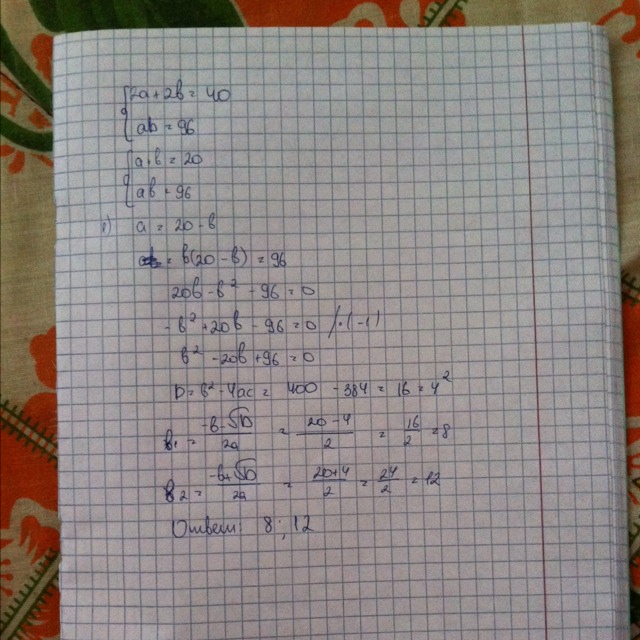 {2a+2b=40
ab=96
{a+b=20
ab=96
1) a = 20-b
= b(20-b) = 96
20b-b² - 96 = 0
-b²+20b-96=0 /·(-1)
b²-20b+96=0
D=b²-4ac= 400 -384 = 16 = 4²
b₁ = (-b-√D)/2a = (20-4)/2 = 16/2 =8
b₂ = (-b+√D)/2a = (20+4)/2 = 24/2 = 12
Ответ: 8; 12